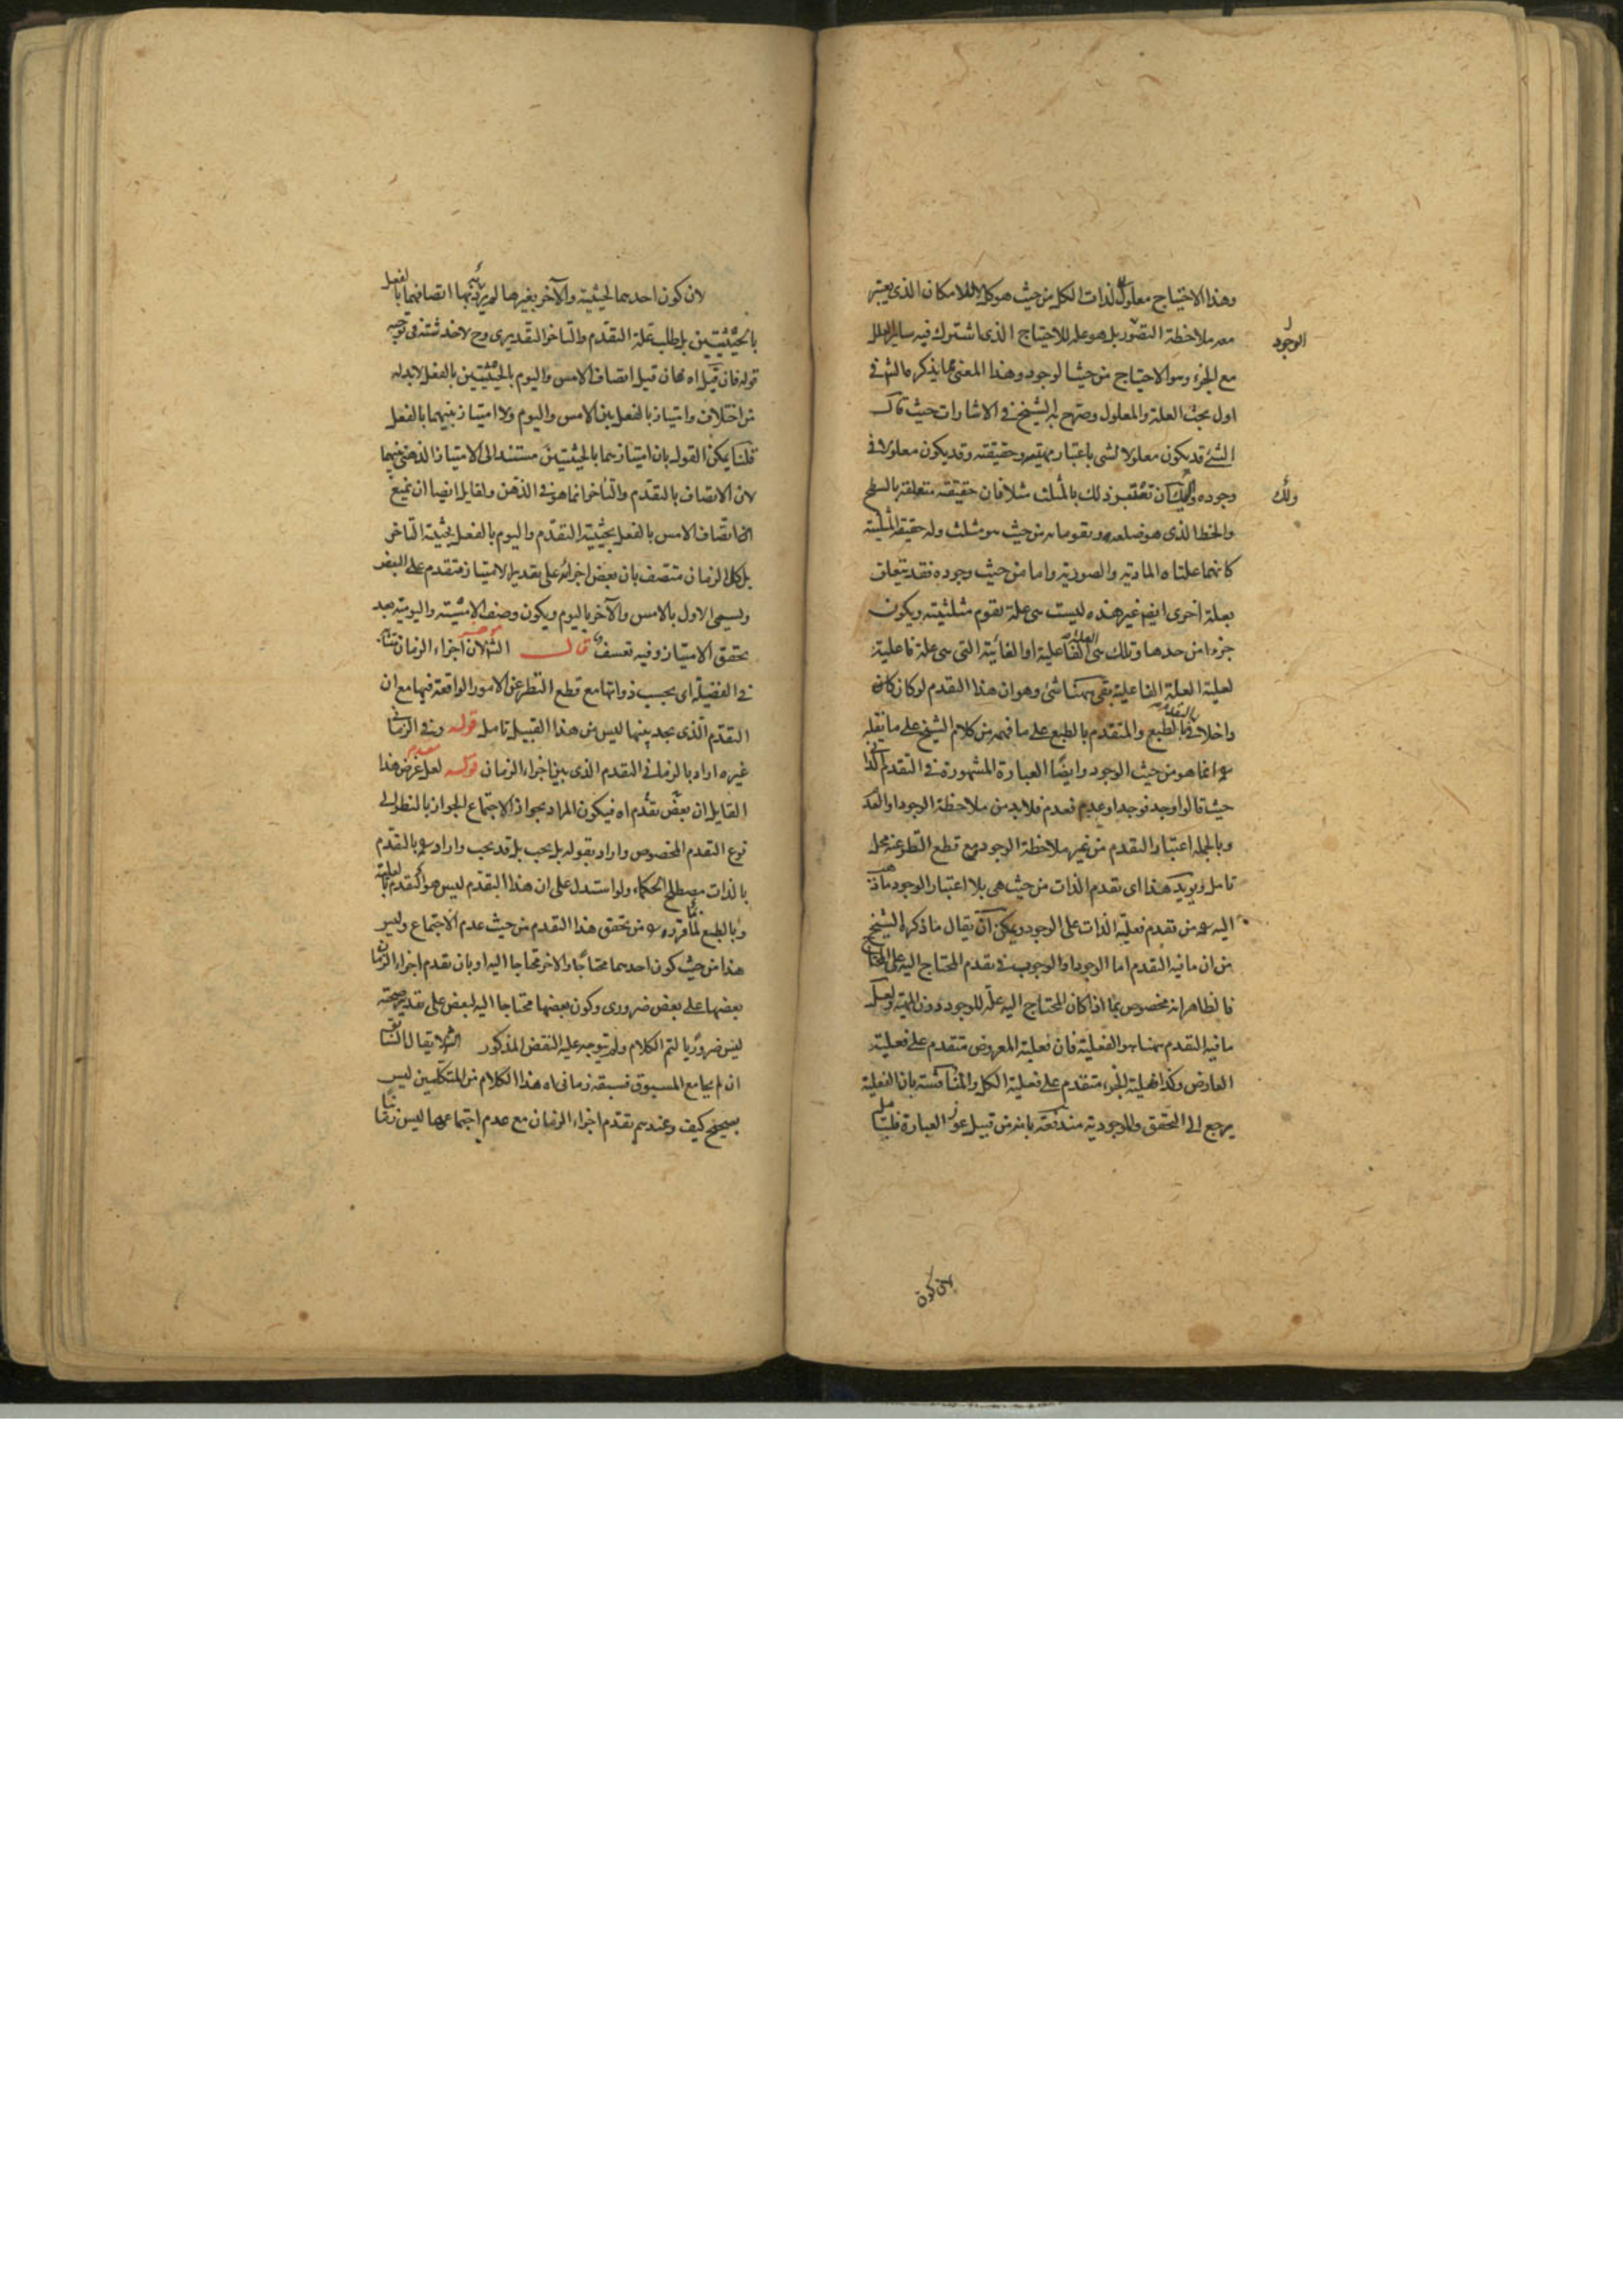 وهذا الاحتياج معلول لذات الكل من حيث هو كل لا للامكان الذي يعتبر
معه ملاحظة التصور بل هو علة للاحتياج الذي اشترك فيه ساير العلل
الوجود
مع الجزء وهو الاحتياج من حيث الوجود وهذا المعنى مما يذكره الش في
اول بحث العلة والمعلول وصرح به الشيخ في الاشارات حيث قال
الشئ قد يكون معلولا لشئ باعتبار مهيته وحقيقته وقد يكون معلولا في
وجوده ان تعتبر ذلك بالمثلث مثلا فان حقيقته متعلقة بالسطح
ولك
والخط الذي هو ضلعه ويقومانه من حيث هو مثلث وله حقيقة المثلثية
كانهما علتاه المادية والصورية واما من حيث وجوده فقد يتعلق
بعلة اخرى ايضا غير هذه ليست هي علة تقوم مثلثيته ويكون
جزءا من حدها وتلك هي العلة الفاعلية او الغائية التي هي علة فاعلية
لعلية العلة الفاعلية بقي ههنا شئ وهو ان هذا التقدم لو كان كان
داخلا في بالطبع والمتقدم بالطبع على ما فهم من كلام الشيخ على ما نقله
انما هو من حيث الوجود وايضا العبارة المشهورة في التقدم
حيث قالوا وجد فوجد او عدم فعدم فلا بد من ملاحظة الوجود او العدم
وبالجملة اعتبار التقدم من غير ملاحظة الوجود مع قطع النظر عنه محل
تامل ويويد هذا اى تقدم الذات من حيث هي بلا اعتبار الوجود ما ذهب
اليه من تقدم فعلية الذات على الوجود ويمكن ان يقال ما ذكره الشيخ
من ان ما فيه التقدم اما الوجود او الوجوب في تقدم المحتاج اليه على المحتاج
فالظاهر انه مخصوص بما اذا كان المحتاج اليه علة للوجود دون المهية ولعل
ما فيه التقدم ههنا هو الفعلية فان فعلية المعروض متقدم على فعلية
العارض وكذا فعلية الجزء متقدم على فعلية الكل والمناقشة بان الفعلية
يرجع الى التحقق والموجودية مندفعة بانه من قبيل عوز العبارة فليتامل
لان كون
لان كون احدهما لحيثية والآخر بغيرها لم يرد بهما اتصافهما بالفعل
بالحيثيتين بل طلب علة التقدم والتاخر التقديرى وح لا خدشة في توجيه
قوله فان قيل اه فان قيل اتصاف الامس واليوم بالحيثيتين بالفعل لا بد له
من اختلاف وامتياز بالفعل بين الامس واليوم ولا امتياز بينهما بالفعل
قلنا يمكن القول بان امتيازهما بالحيثيتين مستند الى الامتياز الذهني بينهما
لان الاتصاف بالتقدم والتاخر انما هو في الذهن ولقايل ايضا ان يمنع
اتصاف الامس بالفعل بحيثية التقدم واليوم بالفعل بحيثية التاخر
بل كل الزمان متصف بان بعض اجزائه على تقدير الامتياز متقدم على البعض
ويسمى الاول بالامس والآخر باليوم ويكون وصف الامسية واليومية بعد
تحقق الامتياز وفيه تعسف قال الش لان اجزاء الزمان
في الفضيلة اى بحسب ذواتها مع قطع النظر عن الامور الواقعة فيها مع ان
التقدم الذي نجد بينها ليس من هذا القبيل تامل قوله وفي الزماني
غيره اراد بالزماني التقدم الذي بين اجزاء الزمان قوله لعل غرض هذا
القايل ان بعض تقدم اه فيكون المراد بجواز الاجتماع الجواز بالنظر الى
نوع التقدم المخصوص واراد بقوله بل يجب بل قد يجب واراد بالتقدم
بالذات مصطلح الحكماء ولو استدل على ان هذا التقدم ليس هو التقدم بالعلية
وبالطبع لما قرره من تحقق هذا التقدم من حيث عدم الاجتماع وليس
هذا من حيث كون احدهما محتاجا والاخر محتاجا اليه او بان تقدم اجزاء الزمان
بعضها على بعض ضرورى وكون بعضها محتاجا اليه لبعض على تقدير صحته
ليس ضروريا لتم الكلام ولم يتوجه عليه النقض المذكور
ان لم يجامع المسبوق فسبقه زماني اه هذا الكلام من المتكلمين ليس
بصحيح كيف وعندهم تقدم اجزاء الزمان مع عدم اجتماعها ليس زمانيا